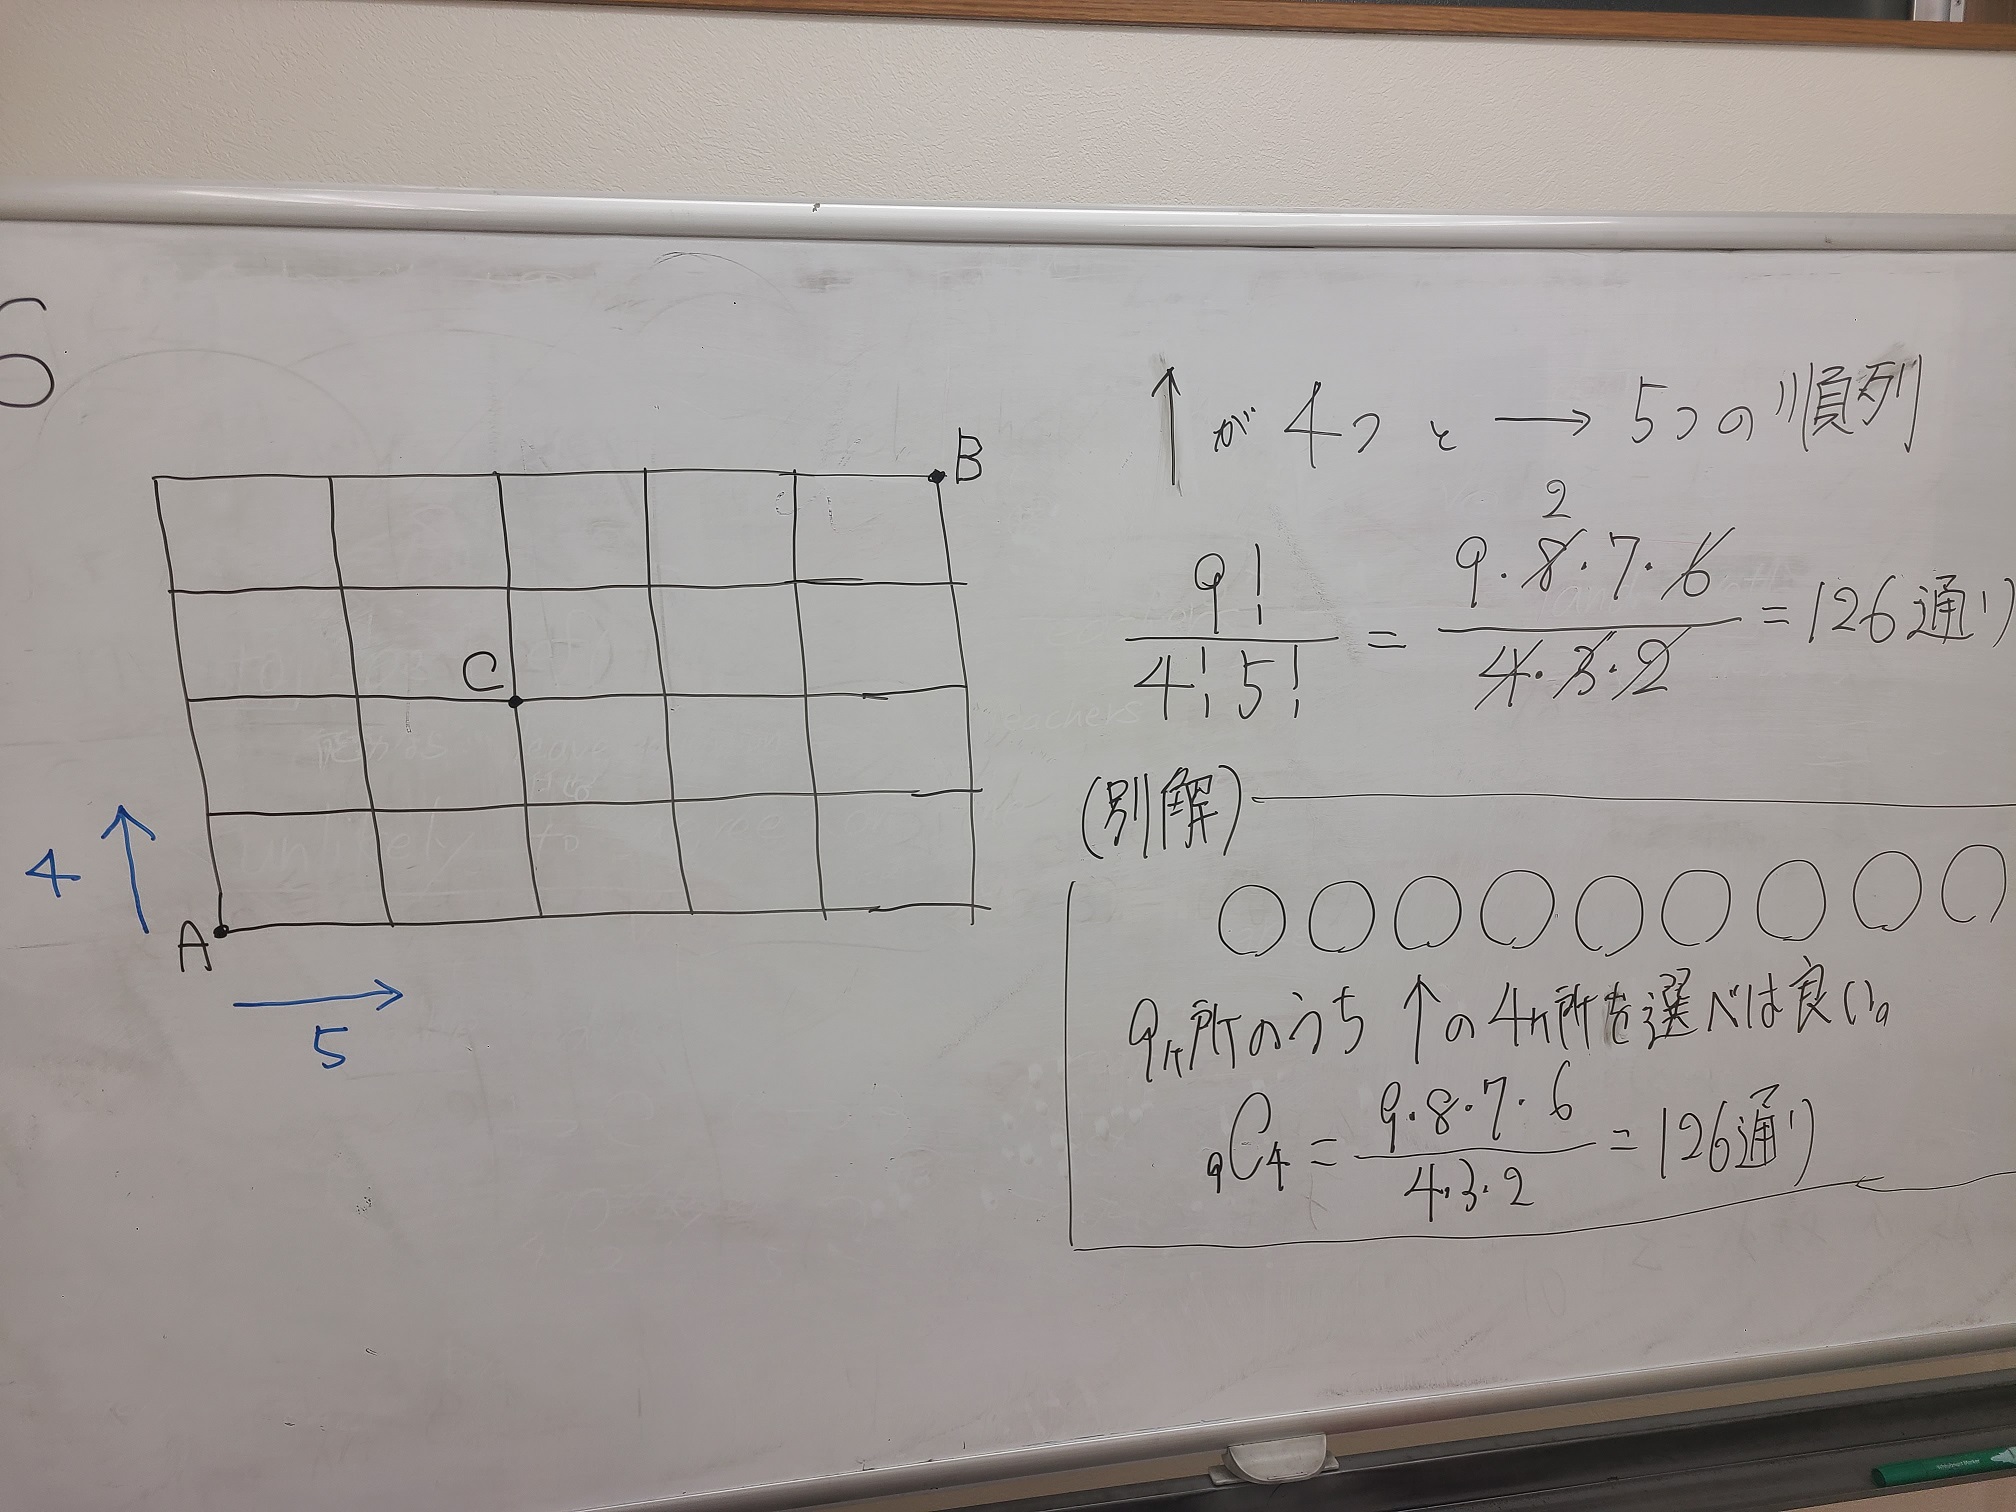 6
B
C
A
4
5
↑ が 4つ と → 5つの順列
9! / 4! 5! = 9・8・7・6 / 4・3・2 = 126通り
2
(別解)
○○○○○○○○○
9ヶ所のうち ↑の4ヶ所を選べば良い。
₉C₄ = 9・8・7・6 / 4・3・2 = 126通り